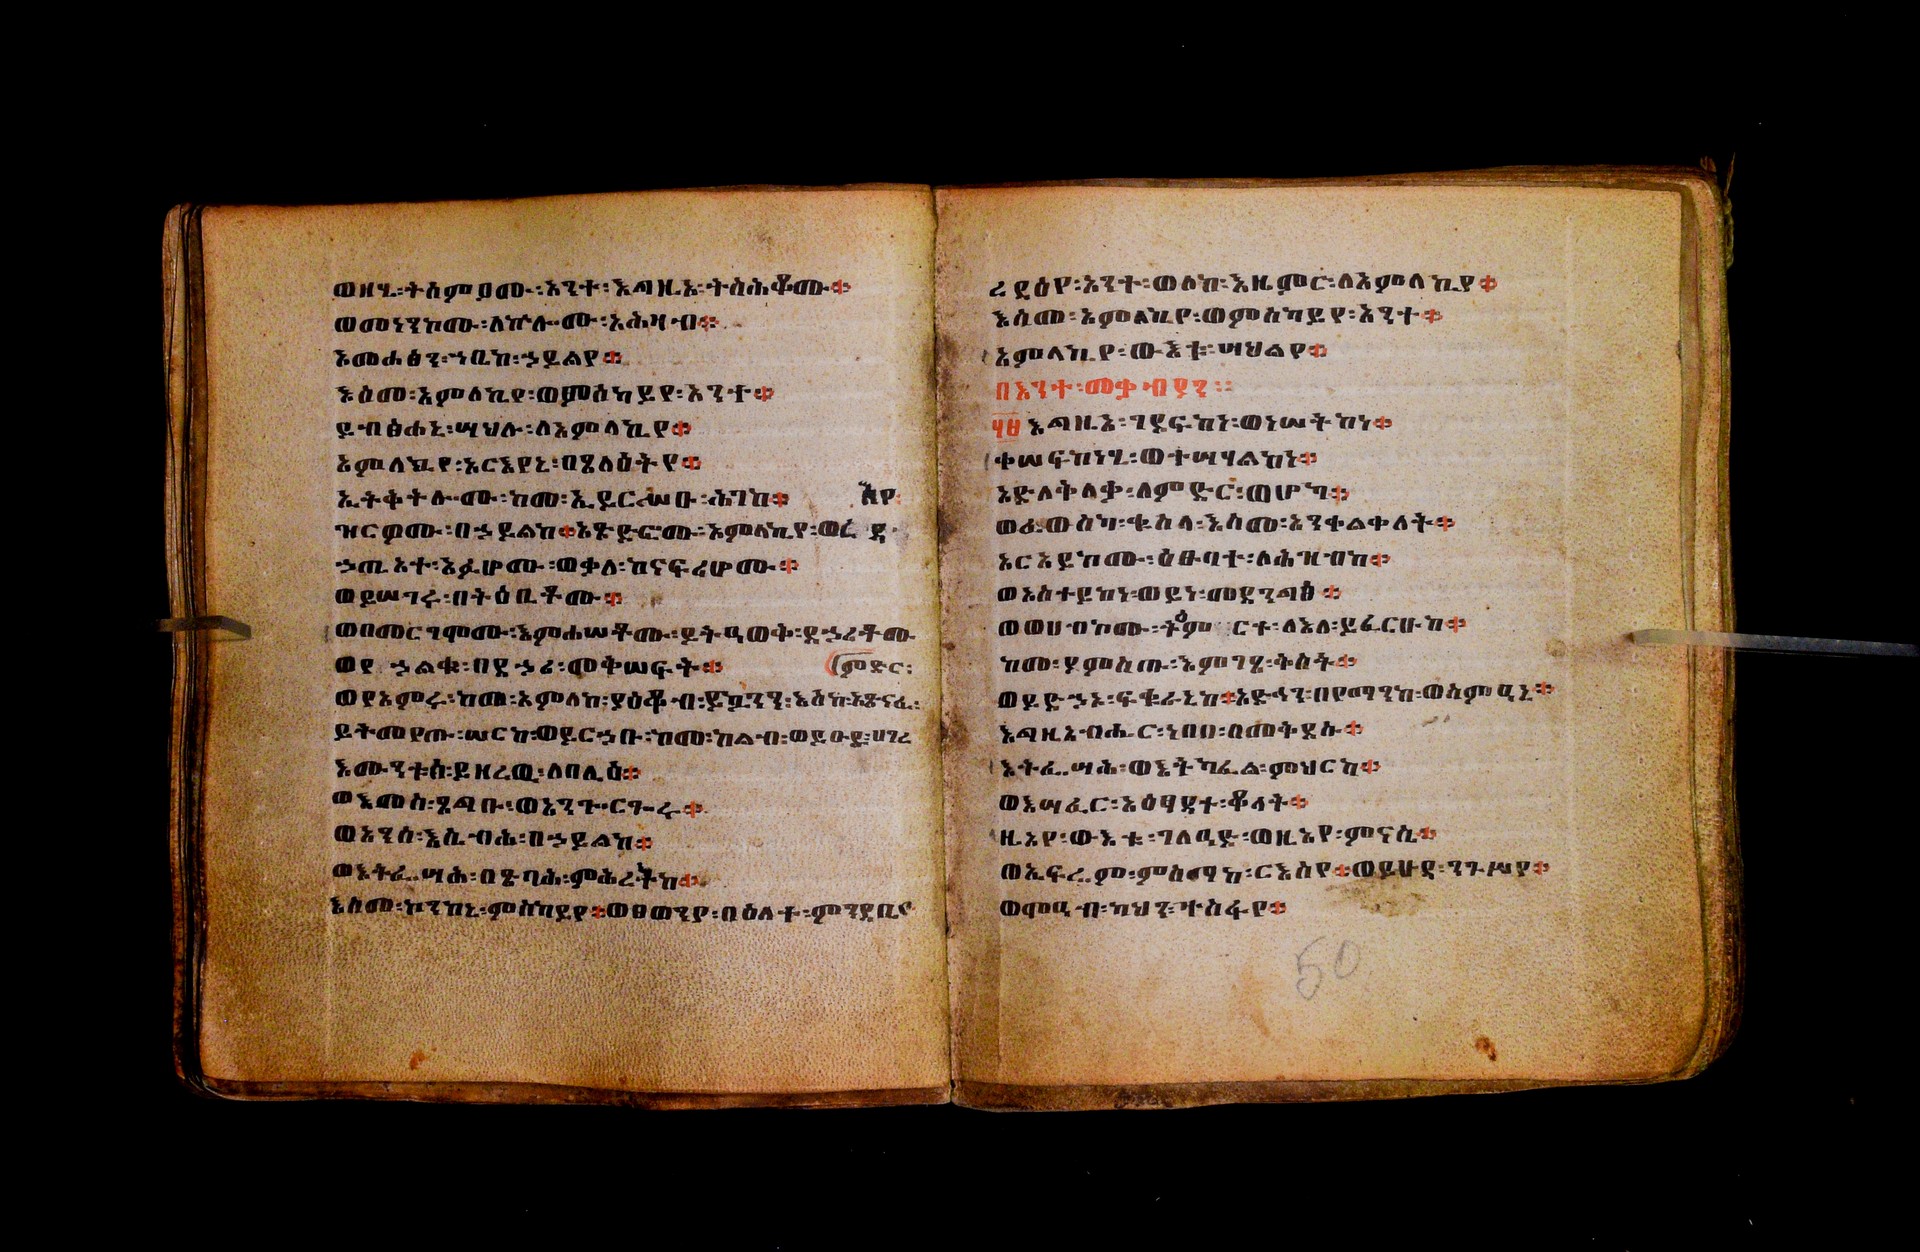 ወዘሂ፡ትሰምዖሙ፡አንተ፡እግዚኦ፡ትስሕቆሙ።
ወመነንከሙ፡ለኵሎሙ፡አሕዛብ።
እመሐፀን፡ኀቤከ፡ኃይልየ።
እስመ፡አምላኪየ፡ወምስካይየ፡አንተ።
ይብፅሐኒ፡ሣህሉ፡ለአምላኪየ።
አምላኪየ፡አርእየኒ፡በጸላዕትየ።
ኢትቅትሎሙ፡ከመ፡ኢይርሥዑ፡ሕገከ።
ዝርዎሙ፡በኃይልከ።አጽድፎሙ፡አምላኪየ፡ወረ
ኃጢአተ፡አፉሆሙ፡ወቃለ፡ከናፍሪሆሙ።
ወይሠገሩ፡በትዕቢቶሙ።
ወበመርገሞሙ፡እምሐሠቶሙ፡ይትዔወቅ፡ደኃሪቶሙ
ወየኃልቁ፡በደኃሪ፡መቅሠፍት።
ምድር፡
ወያእምሩ፡ከመ፡አምላከ፡ያዕቆብ፡ይኴንን፡እስከ፡አጽናፈ፡
ይትመየጡ፡ሠርከ፡ወይርኃቡ፡ከመ፡ከልብ፡ወይዑዱ፡ሀገረ
እሙንቱሰ፡ይዘረዉ፡ለበሊዕ።
ወእመሰ፡ጸግቡ፡ወአንጐርጐሩ።
ወአንሰ፡እሴብሕ፡በኃይልከ።
ወእትፌሣሕ፡በጽባሕ፡ምሕረትከ።
እስመ፡ኮንከኒ፡ምስካይየ።ወፀወንየ፡በዕለተ፡ምንዳቤየ
ረዳዕየ፡አንተ፡ወለከ፡እዜምር፡ለአምላኪየ።
እስመ፡አምላኪየ፡ወምስካይየ፡አንተ።
አምላኪየ፡ውእቱ፡ሣህልየ።
በእንተ፡መቃብያን፡፡
፶፱ እግዚኦ፡ገደፍከነ፡ወነሠትከነ።
ቀሠፍከነሂ፡ወተሣሃልከነ።
አድለቅለቃ፡ለምድር፡ወሆካ።
ወፈውስካ፡ቁስላ፡እስመ፡አንቀልቀለት።
አርአይኮሙ፡ዕፁባተ፡ለሕዝብከ።
ወአስተይከነ፡ወይነ፡መደንግፅ።
ወወሀብኮሙ፡ትእምርተ፡ለእለ፡ይፈርሁከ።
ከመ፡ያምስጡ፡እምገጸ፡ቅስት።
ወይድኃኑ፡ፍቁራኒከ።አድኅን፡በየማንከ፡ወስምዐኒ።
እግዚአብሔር፡ነበበ፡በመቅደሱ።
እትፌሣሕ፡ወእትካፈል፡ምህርካ።
ወእሣፈር፡አዕፃደተ፡ቆላት።
ዚአየ፡ውእቱ፡ገለዓድ፡ወዚአየ፡ምናሴ።
ወኤፍሬም፡ምስማከ፡ርእስየ።ወይሁዳ፡ንጉሥየ።
ወሞዓብ፡ካህን፡ተስፋየ።
50